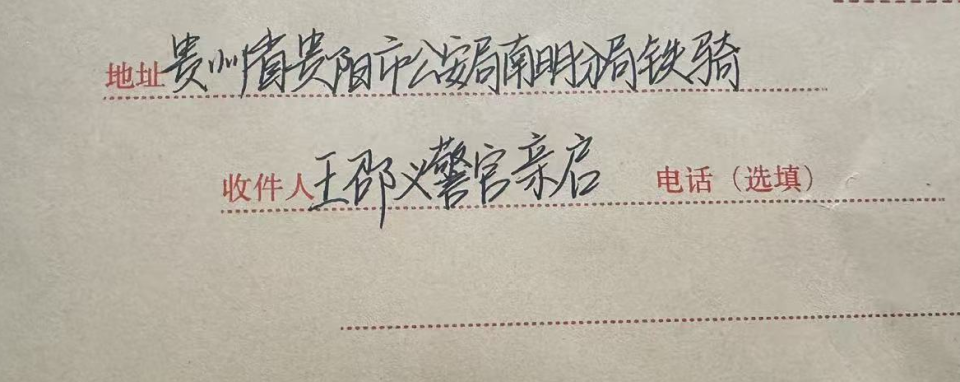 地址 贵州省贵阳市公安局南明分局铁骑
收件人 王邵义警官亲启 电话（选填）